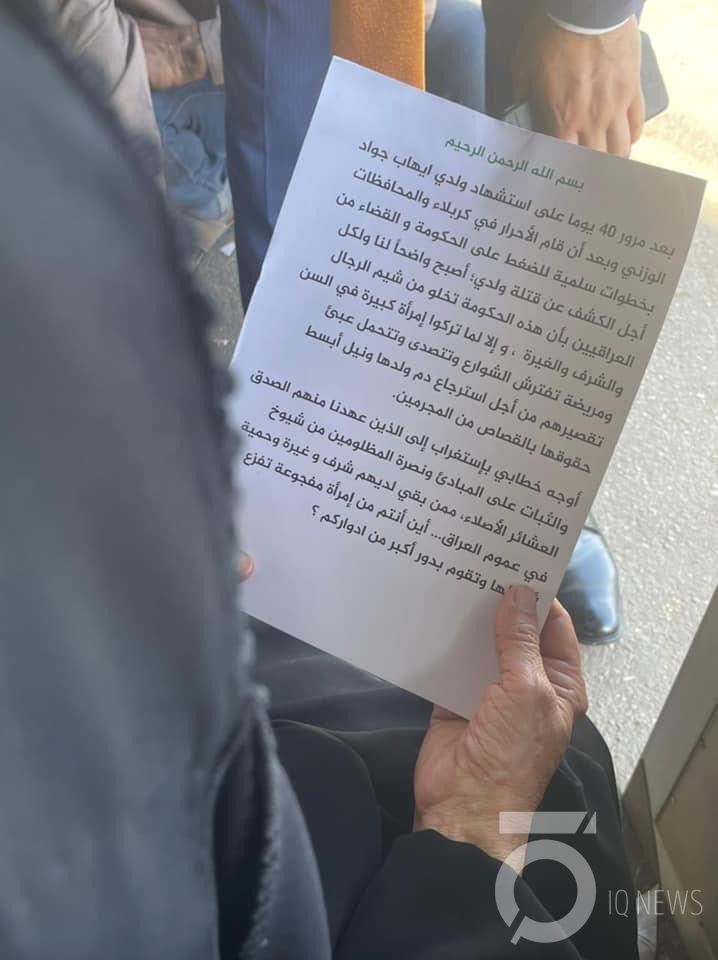 بسم الله الرحمن الرحيم
بعد مرور 40 يوما على استشهاد ولدي ايهاب جواد
الوزني وبعد أن قام الأحرار في كربلاء والمحافظات
بخطوات سلمية للضغط على الحكومة و القضاء من
أجل الكشف عن قتلة ولدي؛ أصبح واضحاً لنا ولكل
العراقيين بأن هذه الحكومة تخلو من شيم الرجال
والشرف والغيرة ، و إلا لما تركوا إمرأة كبيرة في السن
ومريضة تفترش الشوارع وتتصدى وتتحمل عبئ
تقصيرهم من أجل استرجاع دم ولدها ونيل أبسط
حقوقها بالقصاص من المجرمين.
أوجه خطابي بإستغراب إلى الذين عهدنا منهم الصدق
والثبات على المبادئ ونصرة المظلومين من شيوخ
العشائر الأصلاء، ممن بقي لديهم شرف و غيرة وحمية
في عموم العراق... أين أنتم من إمرأة مفجوعة تفزع
وتقوم بدور أكبر من ادواركم ؟
IQ NEWS